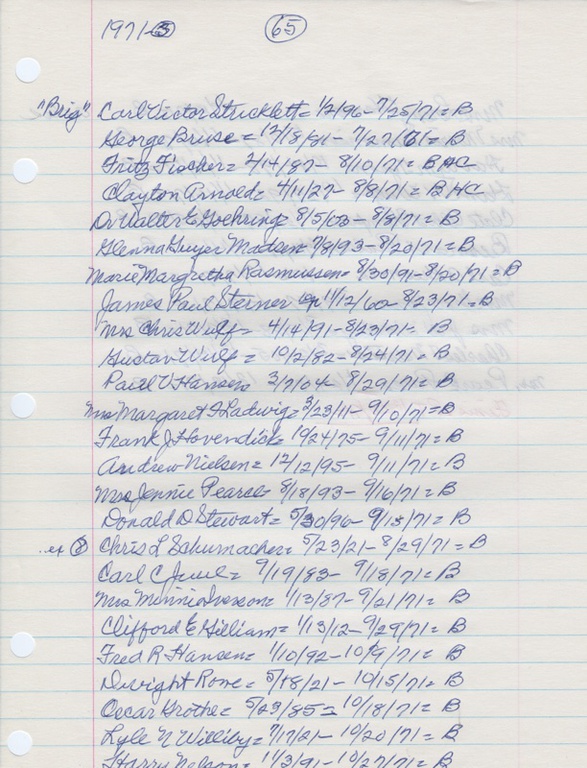 1971-3 65
"Brig" Carl Victor Strucklett = 1/2/96 - 7/25/71 = B
George Bruse = 12/18/81 - 7/27/71 = B
Fritz Fischer = 2/14/87 - 8/10/71 = B HC
Clayton Arnold = 4/11/27 - 8/8/71 = B HC
Dr Walter E Goehring = 8/5/03 - 8/8/71 = B
Glenna Guyer Madsen = 7/8/93 - 8/20/71 = B
Marie Margretha Rasmussen = 8/30/91 - 8/20/71 = B
James Paul Sterner 11/12/60 - 8/23/71 = B
Mrs Chris Wulf = 4/14/91 - 8/23/71 = B
Gustav Wulf = 10/2/82 - 8/24/71 = B
Paul V Hansen 3/7/04 - 8/29/71 = B
Mrs Margaret A Ladwig = 3/23/11 - 9/10/71 = B
Frank J Hovendick = 10/24/75 - 9/11/71 = B
Andrew Nielsen = 12/12/95 - 9/11/71 = B
Mrs Jennie Pearce 8/18/93 - 9/16/71 = B
Donald D Stewart = 5/30/96 - 9/15/71 = B
ex 8 Chris L Schumacher = 5/23/21 - 8/29/71 = B
Carl C Juul = 9/19/83 - 9/18/71 = B
Mrs Minnie Iverson = 1/13/87 - 9/21/71 = B
Clifford E Gilliam = 1/13/12 - 9/29/71 = B
Fred R Hansen = 1/10/92 - 10/9/71 = B
Dwight Rowe = 5/18/21 - 10/15/71 = B
Oscar Grothe = 5/23/85 = 10/18/71 = B
Lyle N Williby = 7/17/21 - 10/20/71 = B
Harry Nelson = 11/3/91 - 10/27/71 = B